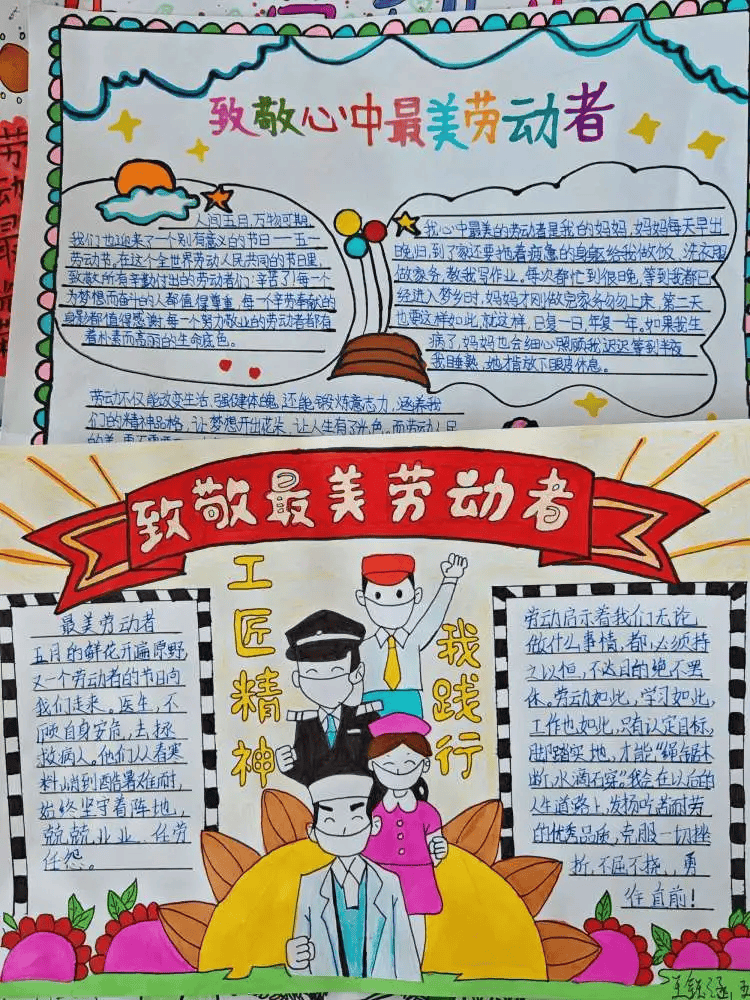 致敬心中最美劳动者
人间五月,万物可期,
我们也迎来了一个别有意义的节日——五一
劳动节,在这个全世界劳动人民共同的节日里,
致敬所有辛勤付出的劳动者们:辛苦了!每一个
为梦想而奋斗的人都值得尊重,每一个辛劳奉献的
身影都值得感谢,每一个努力敬业的劳动者都有
着朴素而高丽的生命底色。
我心中最美的劳动者是我的妈妈,妈妈每天早出
晚归,到了家还要拖着疲惫的身躯给我做饭、洗衣服
做家务,教我写作业。每次都忙到很晚,等到我都已
经进入梦乡时,妈妈才刚做完家务匆匆上床,第二天
也要这样如此,就这样,日复一日,年复一年。如果我生
病了,妈妈也会细心照顾我,迟迟等到半夜
我睡熟,她才肯放下眼皮休息。
劳动不仅能改变生活,强健体魄,还能锻炼意志力,涵养我
们的精神品格,让梦想开出花朵,让人生有了光色。而劳动人民
劳动最
致敬最美劳动者
工匠精神
我践行
最美劳动者
五月的鲜花开遍原野
又一个劳动者的节日向
我们走来。医生,不
顾自身安危,去拯
救病人。他们从春寒
料峭到酷暑难耐,
始终坚守着阵地,
兢兢业业、任劳
任怨。
劳动启示着我们无论
做什么事情,都必须持
之以恒,不达目的绝不罢
休。劳动如此,学习如此,
工作也如此,只有认定目标,
脚踏实地,才能“绳锯木
断,水滴石穿”。我会在以后的
人生道路上,发扬吃苦耐劳
的优秀品质,克服一切挫
折,不屈不挠,勇
往直前!